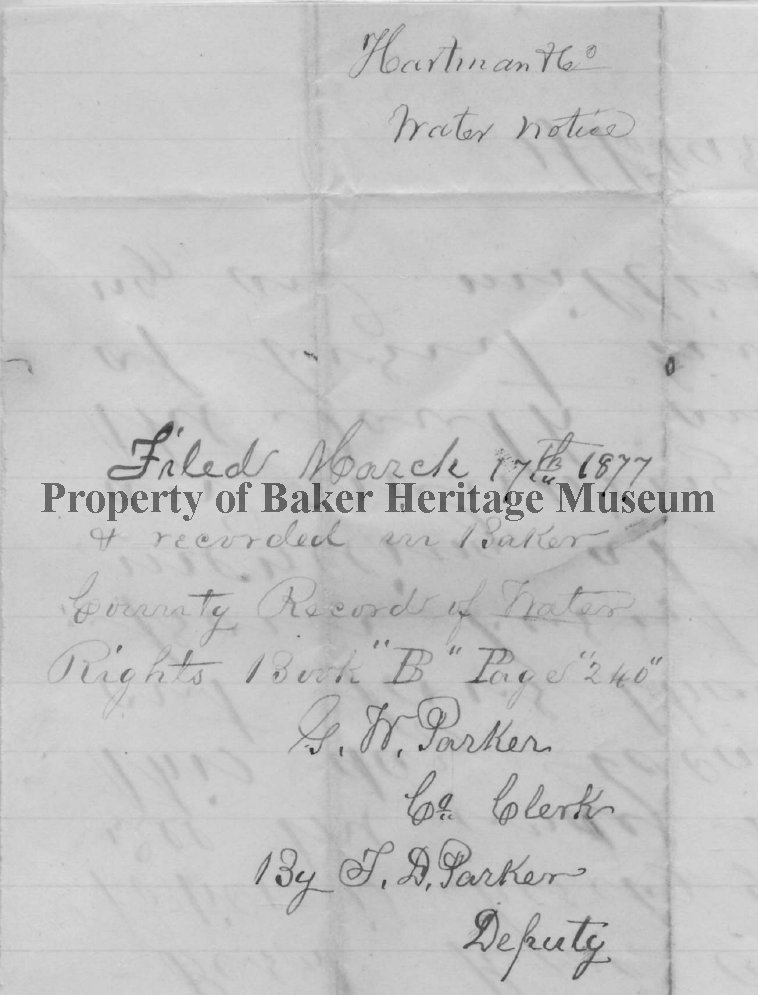 Hartman & Co
Water Notice
Filed March 17th 1877
Property of Baker Heritage Museum
& recorded in Baker
County Record of Water
Rights Book "B" Page "240"
G. W. Parker
Co Clerk
By T. D. Parker
Deputy